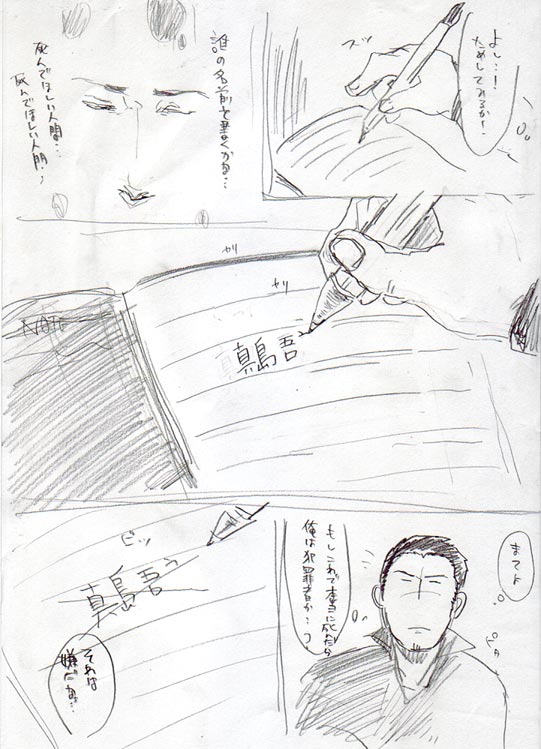 よし…!
ためしてみるか!
ズッ
誰の名前を書くかな…
死んでほしい人間…
死んでほしい人間、
ガリ
ガリ
NOTE
真島吾
まてよ
ピタ
もしこれで本当に死んだら
俺は犯罪者か…?
ピッ
真島吾
それは
嫌だな…